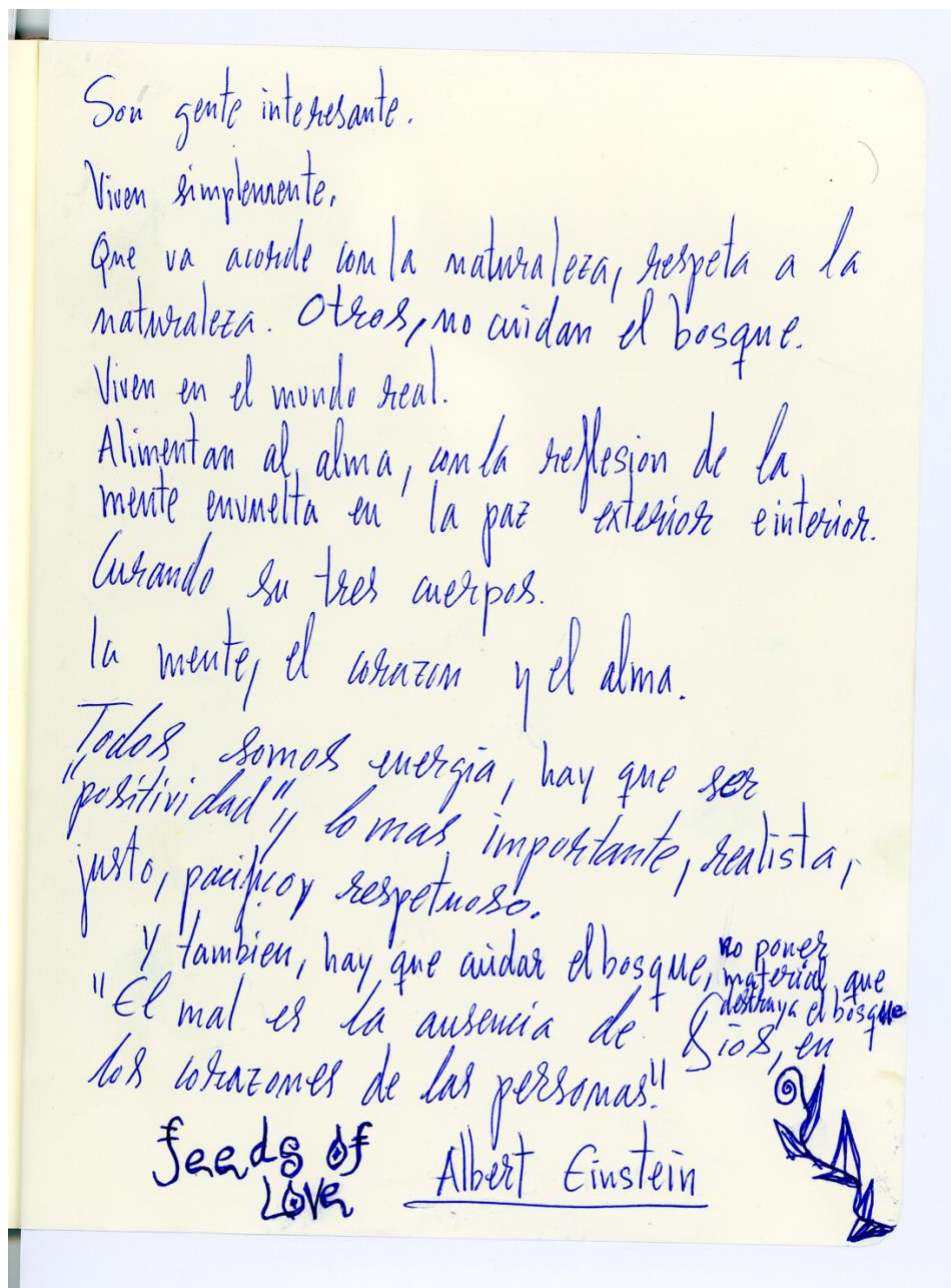 Son gente interesante.
Viven simplemente.
Que va acorde con la naturaleza, respeta a la
naturaleza. Otros, no cuidan el bosque.
Viven en el mundo real.
Alimentan al alma, con la reflesion de la
mente envuelta en la paz exterior e interior.
Curando su tres cuerpos.
la mente, el corazon y el alma.
Todos somos energia, hay que ser
"positividad", y lo mas importante, realista,
justo, pacifico y respetuoso.
Y tambien, hay que cuidar el bosque, no poner
material que
destruya el bosque
"El mal es la ausencia de Dios, en
los corazones de las personas."
Seeds of
Love
Albert Einstein